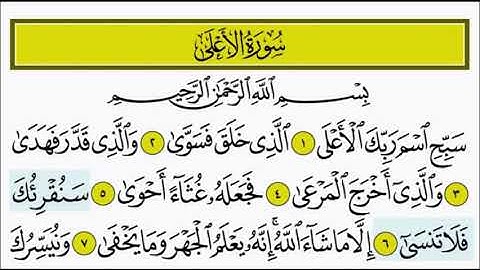 سُورَةُ الأَعْلَى
بِسْمِ ٱللَّهِ ٱلرَّحْمَٰنِ ٱلرَّحِيمِ
سَبِّحِ ٱسْمَ رَبِّكَ ٱلْأَعْلَى ١ ٱلَّذِى خَلَقَ فَسَوَّىٰ ٢ وَٱلَّذِى قَدَّرَ فَهَدَىٰ
٣ وَٱلَّذِىٓ أَخْرَجَ ٱلْمَرْعَىٰ ٤ فَجَعَلَهُۥ غُثَآءً أَحْوَىٰ ٥ سَنُقْرِئُكَ
فَلَا تَنسَىٰٓ ٦ إِلَّا مَا شَآءَ ٱللَّهُ ۚ إِنَّهُۥ يَعْلَمُ ٱلْجَهْرَ وَمَا يَخْفَىٰ ٧ وَنُيَسِّرُكَ